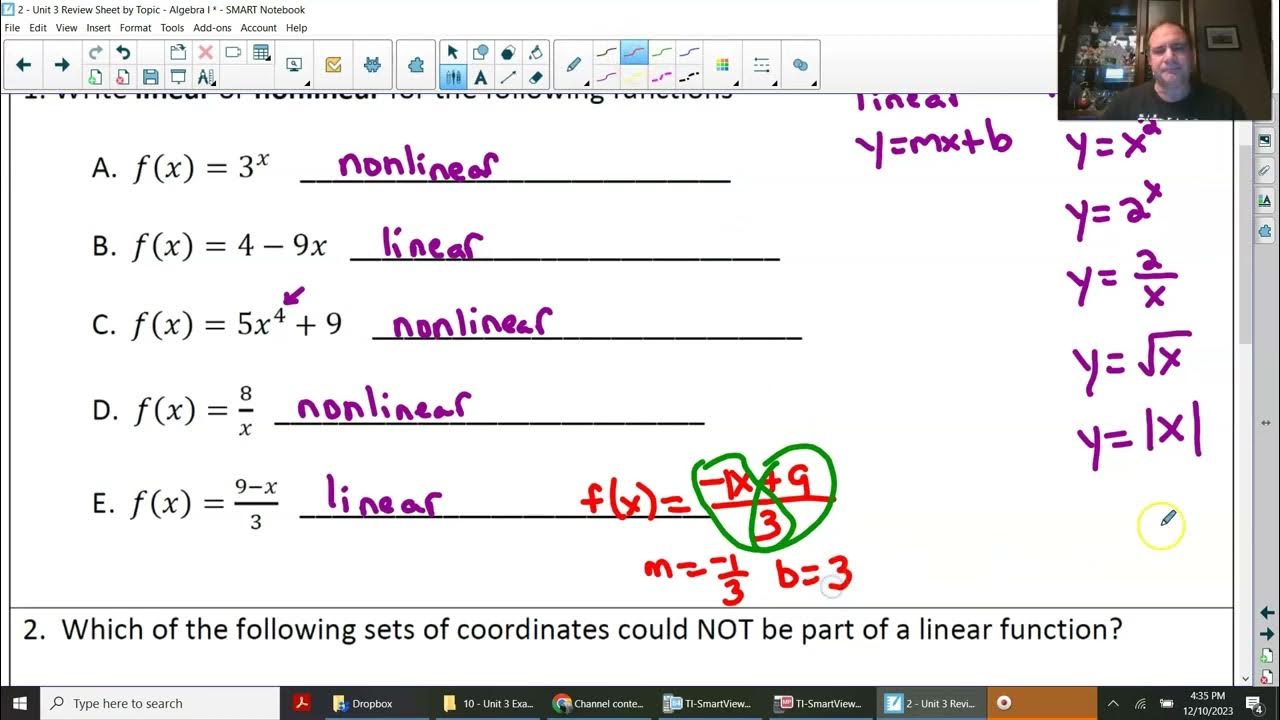 2 - Unit 3 Review Sheet by Topic - Algebra I * - SMART Notebook
File Edit View Insert Format Tools Add-ons Account Help
1. Write linear or nonlinear for the following functions
linear
y=mx+b
y=x²
y=2ˣ
y=2/x
y=√x
y=|x|
A. f(x) = 3ˣ nonlinear
B. f(x) = 4 − 9x linear
C. f(x) = 5x⁴ + 9 nonlinear
D. f(x) = 8/x nonlinear
E. f(x) = (9−x)/3 linear
f(x) = (-1x + 9)/3
m = -1/3 b = 3
2. Which of the following sets of coordinates could NOT be part of a linear function?
Type here to search
Dropbox
10 - Unit 3 Exa...
Channel conte...
TI-SmartView...
TI-SmartView...
2 - Unit 3 Revi...
4:35 PM
12/10/2023
4